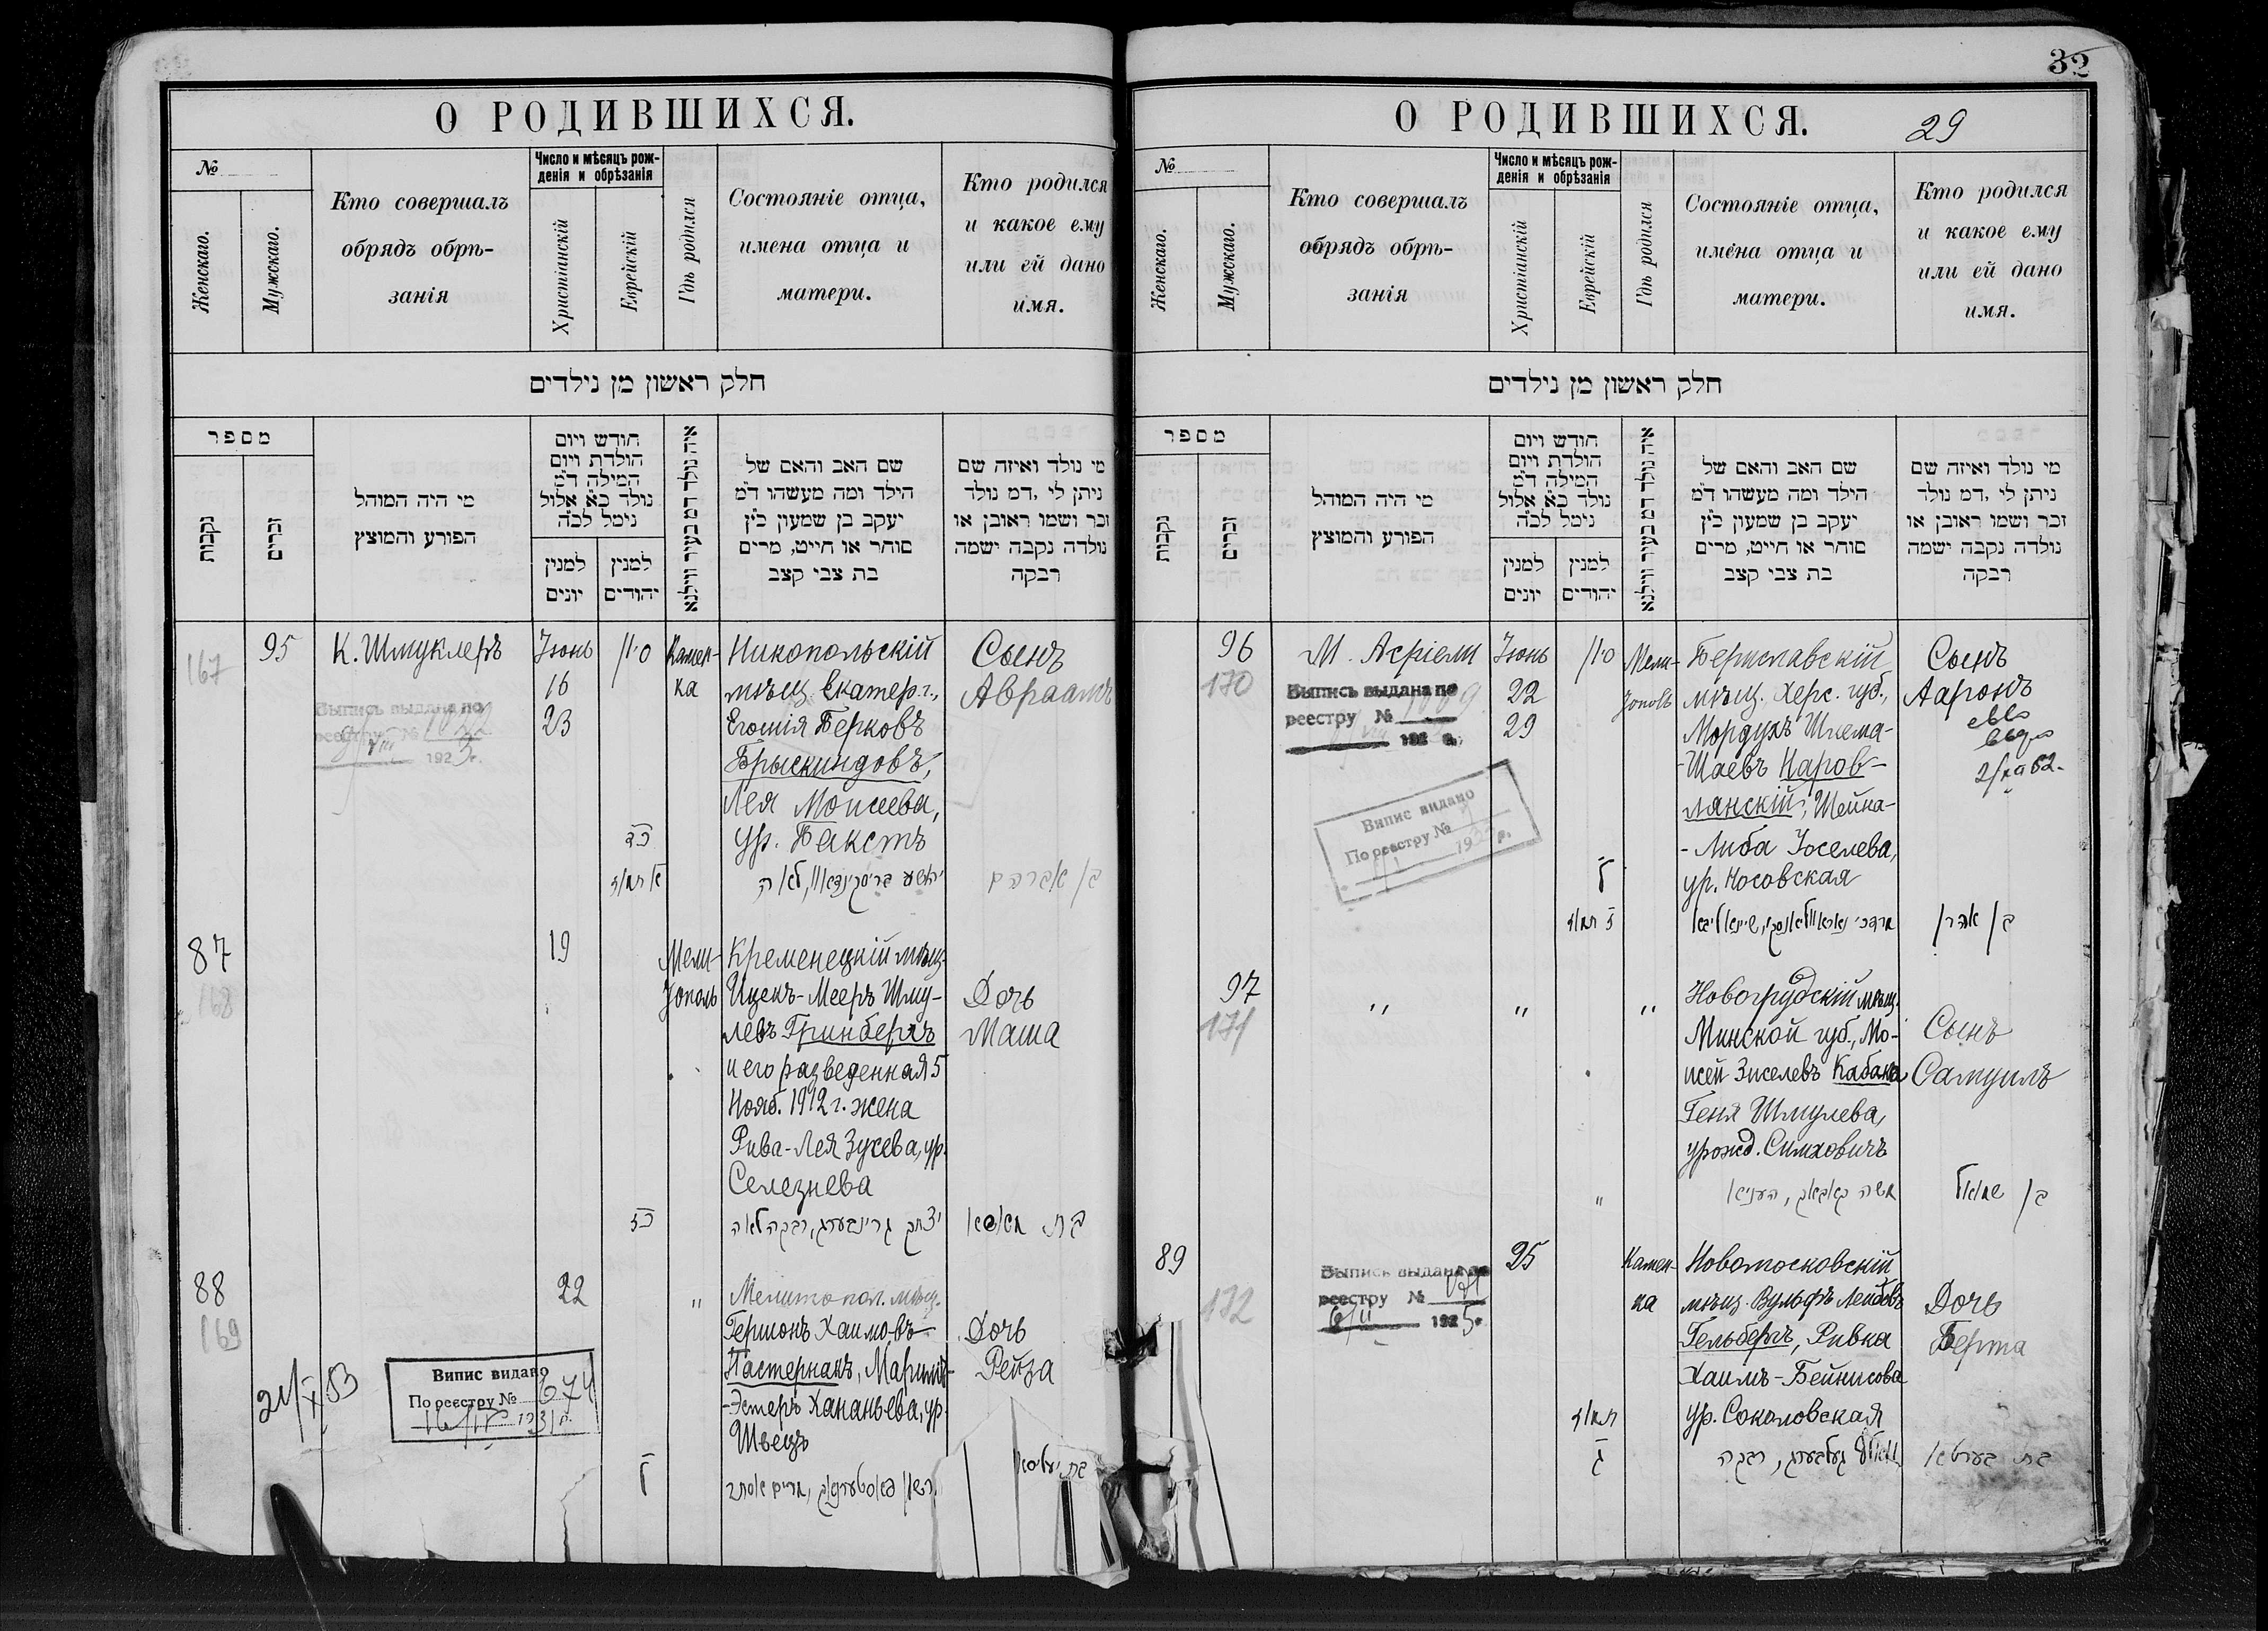 О РОДИВШИХСЯ.
№
Женскаго.
Мужскаго.
Кто совершалъ
обрядъ обрѣ-
занія
Число и мѣсяцъ рож-
денія и обрѣзанія
Христіанскій
Еврейскій
Гдѣ родился
Состояніе отца,
имена отца и
матери.
Кто родился
и какое ему
или ей дано
имя.
חלק ראשון מן נילדים
מספר
נקבות
זכרים
מי היה המוהל
הפורע והמוצץ
חודש ויום
הולדת ויום
המילה ד״מ
נולד כ״א אלול
נימל לכ״ה
למנין
יונים
למנין
יהודים
איה נולד דמ בעיר ווילנא
שם האב והאם של
הילד ומה מעשהו ד״מ
יעקב בן שמעון כ״ץ
סוחר או חייט, מרים
בת צבי קצב
מי נולד ואיזה שם
ניתן לי ,דמ נולד
זכר ושמו ראובן או
נולדה נקבה ישמה
רבקה
167
95
К. Шмуклеръ
Выпись выдана по
реестру № 1022
192
Іюнь
16
23
סיון
כד
א תמוז
Камен-
ка
Никопольскій
мѣщ. Екатер. г.,
Егошія Берковъ
Брыскиндовъ,
Лея Моисеева,
ур. Бакстъ
Сынъ
Авраамъ
בן אברהם
87
168
19
כז
Мели-
тополь
Кременецкій мѣщ.
Ицекъ-Мееръ Шму-
левъ Гринбергъ
и его разведенная 5
Нояб. 1912 г. жена
Рива-Лея Зусева, ур.
Селезнева
יצחק גרינבערג, רבקה לאה
Дочь
Маша
בת מאשא
88
169
21/X 53
Випис видано
По реєстру № 674
22
ל
"
Мелитопол. мѣщ.
Гершонъ Хаимовъ
Пастернакъ, Маріимъ-
-Эстеръ Хананьева, ур.
Швецъ
Дочь
Рейза
32
О РОДИВШИХСЯ.
29
№
Женскаго.
Мужскаго.
Кто совершалъ
обрядъ обрѣ-
занія
Число и мѣсяцъ рож-
денія и обрѣзанія
Христіанскій
Еврейскій
Гдѣ родился
Состояніе отца,
имена отца и
матери.
Кто родился
и какое ему
или ей дано
имя.
חלק ראשון מן נילדים
מספר
נקבות
זכרים
מי היה המוהל
הפורע והמוצץ
חודש ויום
הולדת ויום
המילה ד״מ
נולד כ״א אלול
נימל לכ״ה
למנין
יונים
למנין
יהודים
איה נולד דמ בעיר ווילנא
שם האב והאם של
הילד ומה מעשהו ד״מ
יעקב בן שמעון כ״ץ
סוחר או חייט, מרים
בת צבי קצב
מי נולד ואיזה שם
ניתן לי ,דמ נולד
זכר ושמו ראובן או
נולדה נקבה ישמה
רבקה
96
170
М. Асріели
Выпись выдана по
реестру №
192
Випис видано
По реєстру №
193 р.
Іюнь
22
29
סיון
ל
ז תמוז
Мели-
тополь
Бериславскій
мѣщ. Херс. губ.,
Мордухъ Шлема-
-Шаевъ Наров-
лянскій, Шейна-
-Либа Іоселева,
ур. Носовская
Сынъ
Ааронъ
בן אהרן
97
171
"
"
"
"
Новогрудскій мѣщ.
Минской губ., Мо-
исей Зиселевъ Кабакъ
Геня Шмулева,
урожд. Симховичъ
Сынъ
Самуилъ
בן שמואל
89
172
Выпись выдана по
реестру №
192
25
תמוז
ג
Камен-
ка
Новомосковскій
мѣщ. Вульфъ Лейбовъ
Гельбергъ, Ривка
Хаимъ-Бейнисова
ур. Соколовская
Дочь
Берта
בת בערטא